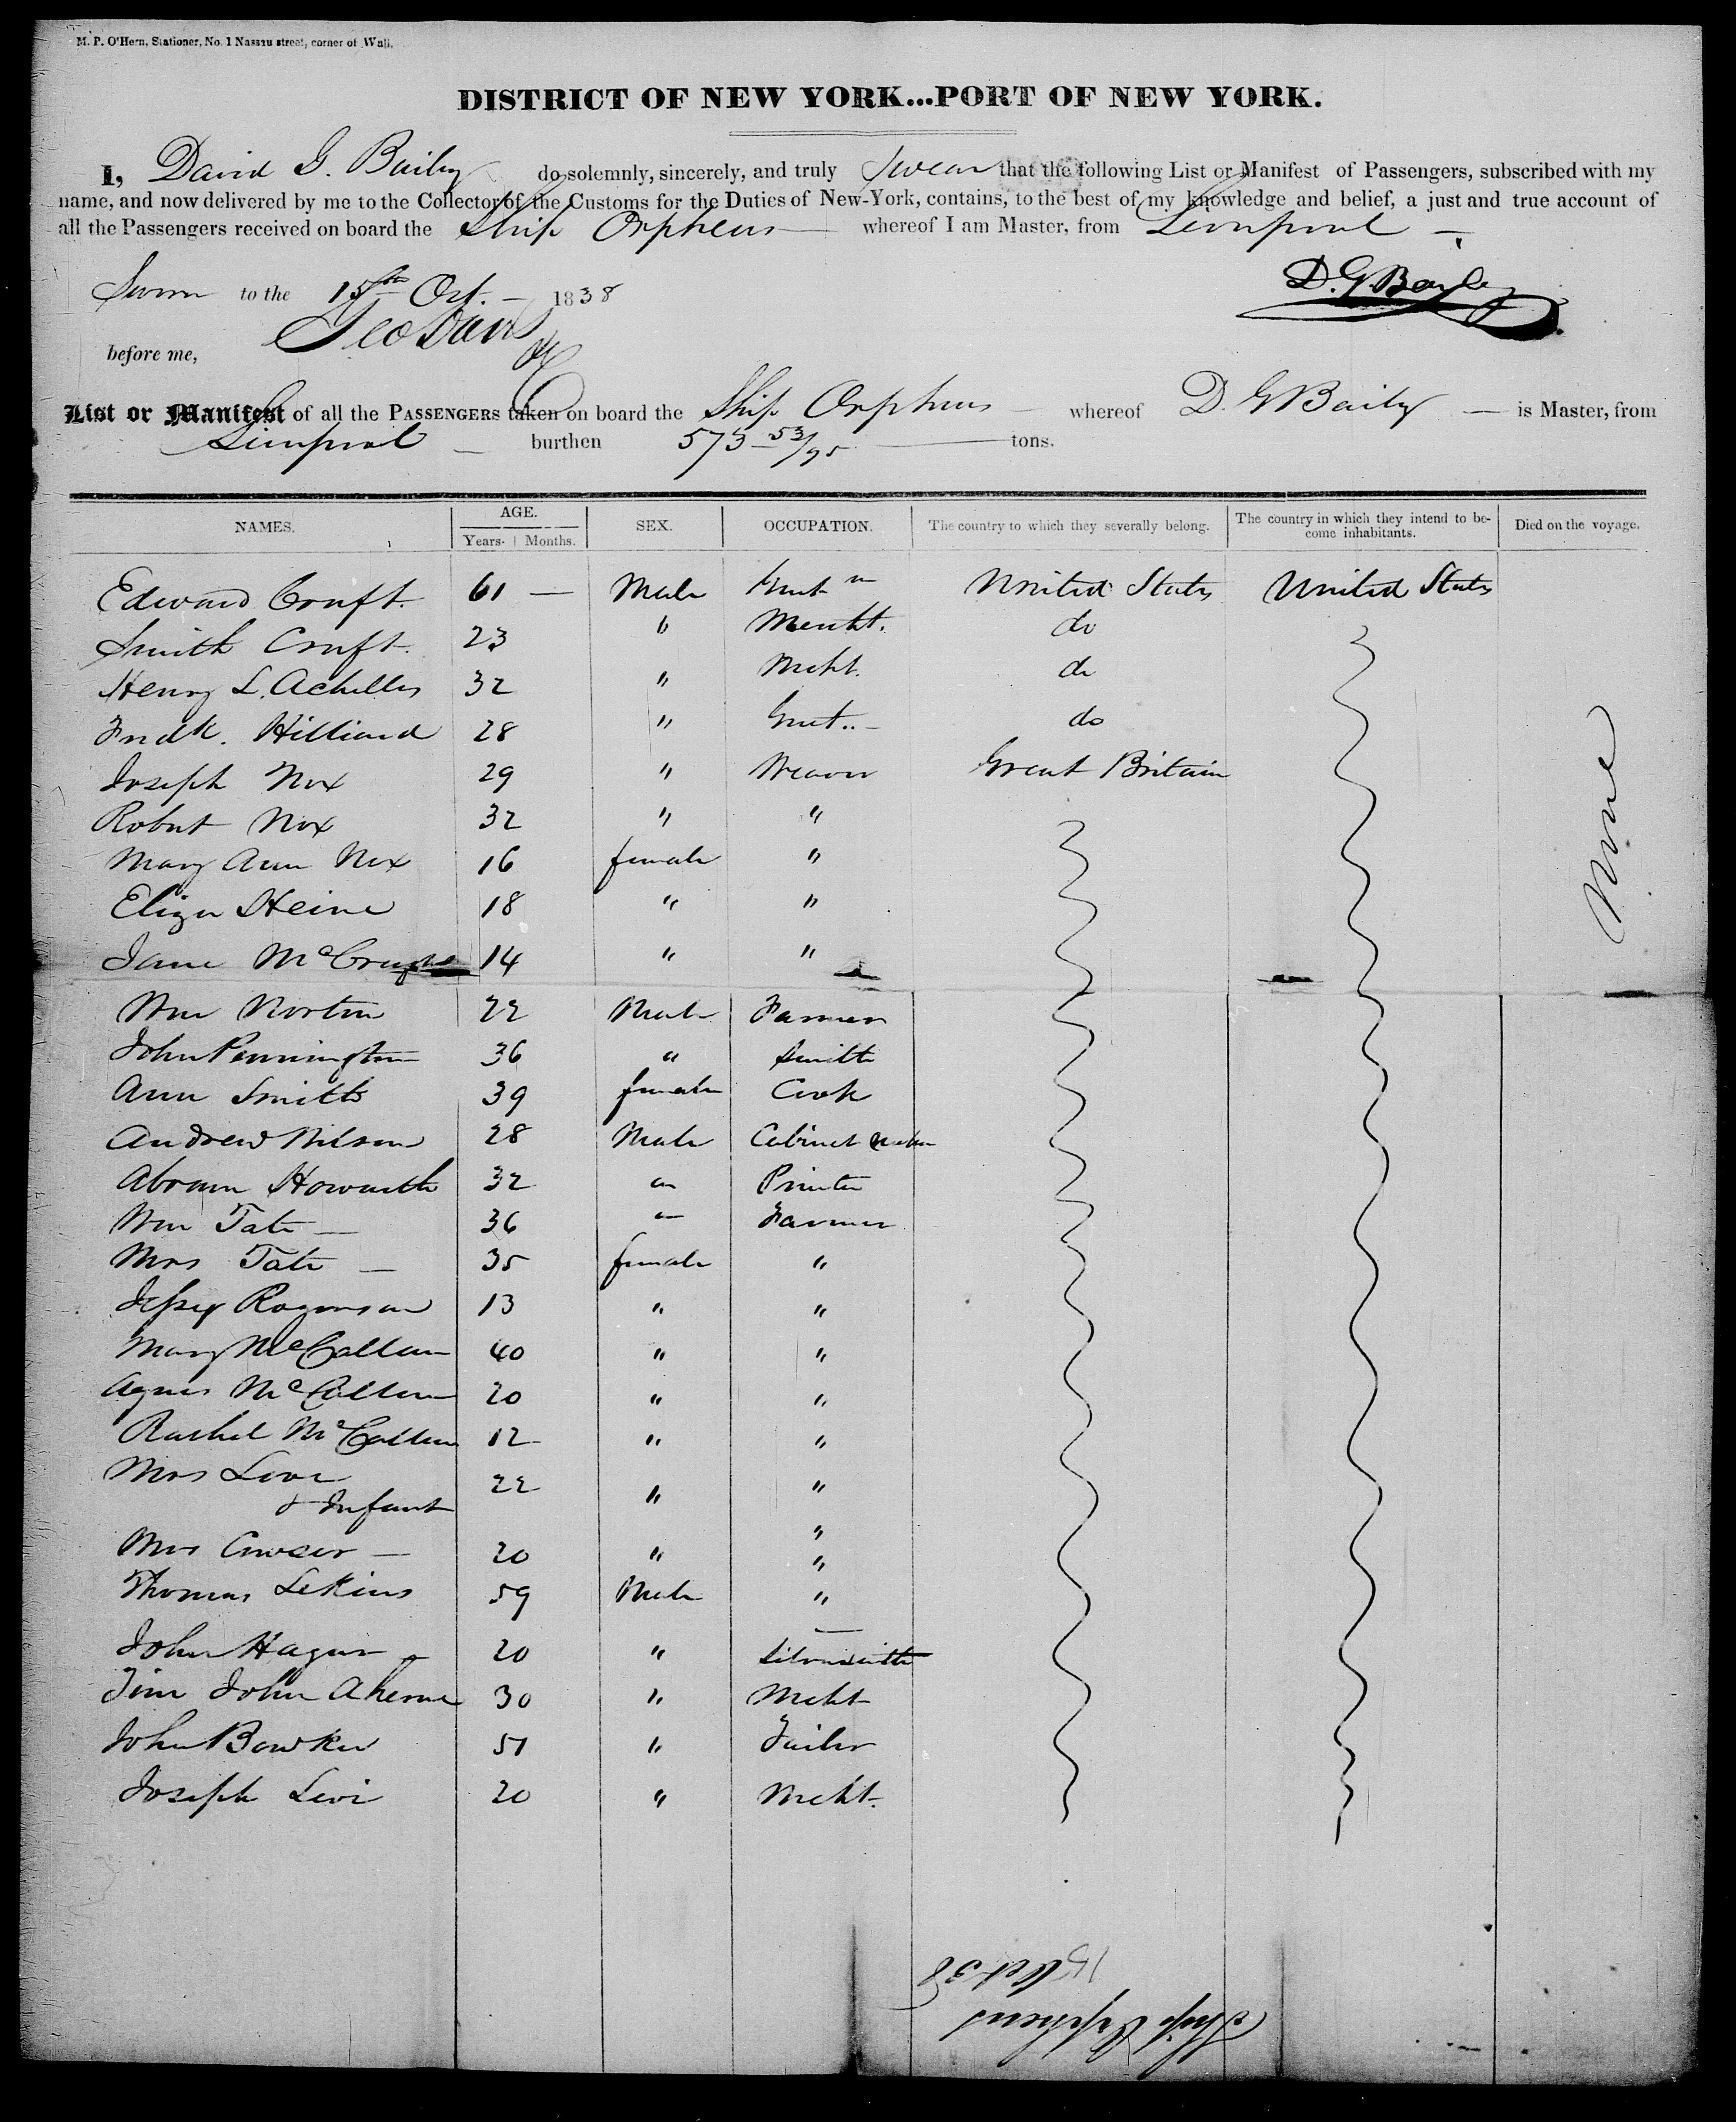 M. P. O'Hern, Stationer, No. 1 Nassau street, corner of Wall.
DISTRICT OF NEW YORK...PORT OF NEW YORK.
I, David G. Baily do solemnly, sincerely, and truly swear that the following List or Manifest of Passengers, subscribed with my
name, and now delivered by me to the Collector of the Customs for the Duties of New-York, contains, to the best of my knowledge and belief, a just and true account of
all the Passengers received on board the Ship Orpheus whereof I am Master, from Liverpool
D. G. Bayley
Sworn to the 15th Oct. 1838
Geo Davis
before me,
List or Manifest of all the PASSENGERS taken on board the Ship Orpheus whereof D. G Baily is Master, from
Liverpool burthen 573 53/95 tons.
NAMES. AGE. SEX. OCCUPATION. The country to which they severally belong. The country in which they intend to become inhabitants. Died on the voyage.
Years. Months.
Edward Cruft. 61 — Male United States United States
Smith Cruft. 23 " Mercht. do
Henry L. Achilles 32 " Mcht. do
Fredk. Hilliard 28 " do
Joseph Nox 29 " Weaver Great Britain
Robert Nox 32 " "
Mary Ann Nox 16 female "
None
Eliza Heine 18 " "
Jane 14 " "
Wm Norton 22 Male Farmer
John Pennington 36 " Smith
Ann Smith 39 female Cook
Andrew Wilson 28 Male Cabinet maker
Abram Howarth 32 " Printer
Wm Tate — 36 " Farmer
Mrs Tate — 35 female "
Jessy 13 " "
Mary McCallum 40 " "
Agnes McCallum 20 " "
Rachel McCallum 12 " "
Mrs Levi 22 " "
& Infant "
Mrs — 20 " "
Thomas Lekins 59 Male "
John Hagan 20 " Silversmith
Tim John Aherne 30 " Mcht
John Bowker 51 " Tailor
Joseph Levi 20 " Mcht.
Ship Orpheus
15 Oct 38